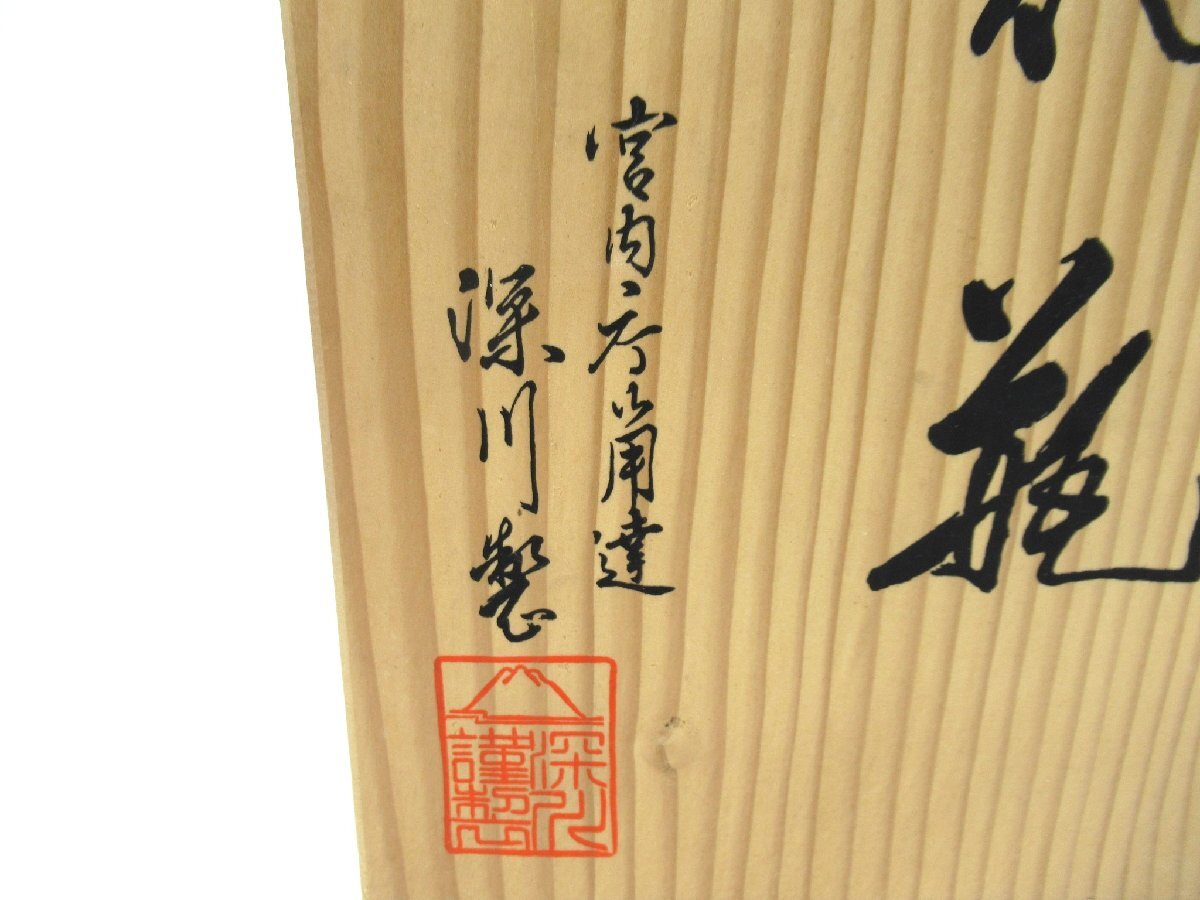 瓶
宮内庁御用達
深川製
深川
謹製